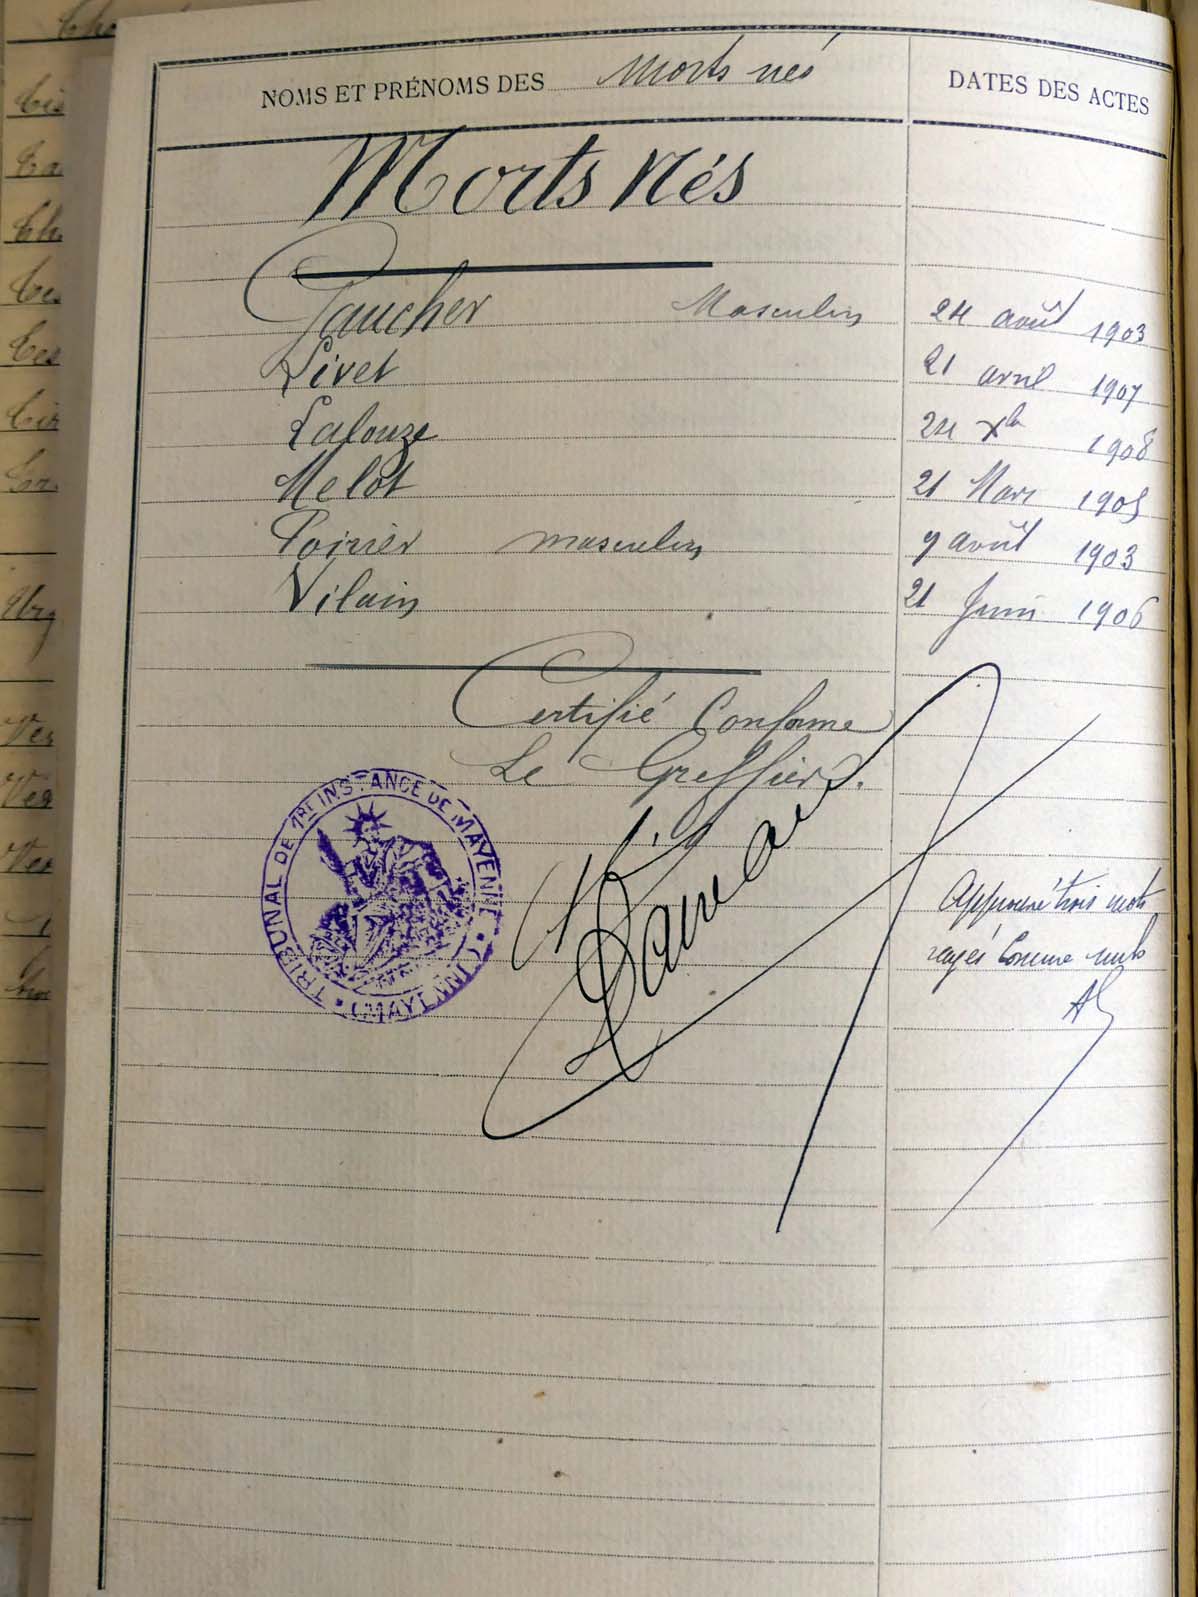 NOMS ET PRÉNOMS DES Morts nés DATES DES ACTES
Morts Nés
Gaucher Masculin 24 août 1903
Livet 21 avril 1907
Lalouze 24 Xbre 1908
Melot 21 Mars 1905
Poirier masculin 9 août 1903
Vilain 21 Juin 1906
Certifié Conforme
Le Greffier.
TRIBUNAL DE 1RE INSTANCE DE MAYENNE
(MAYENNE)
Approuvé trois mots
rayés Comme nuls